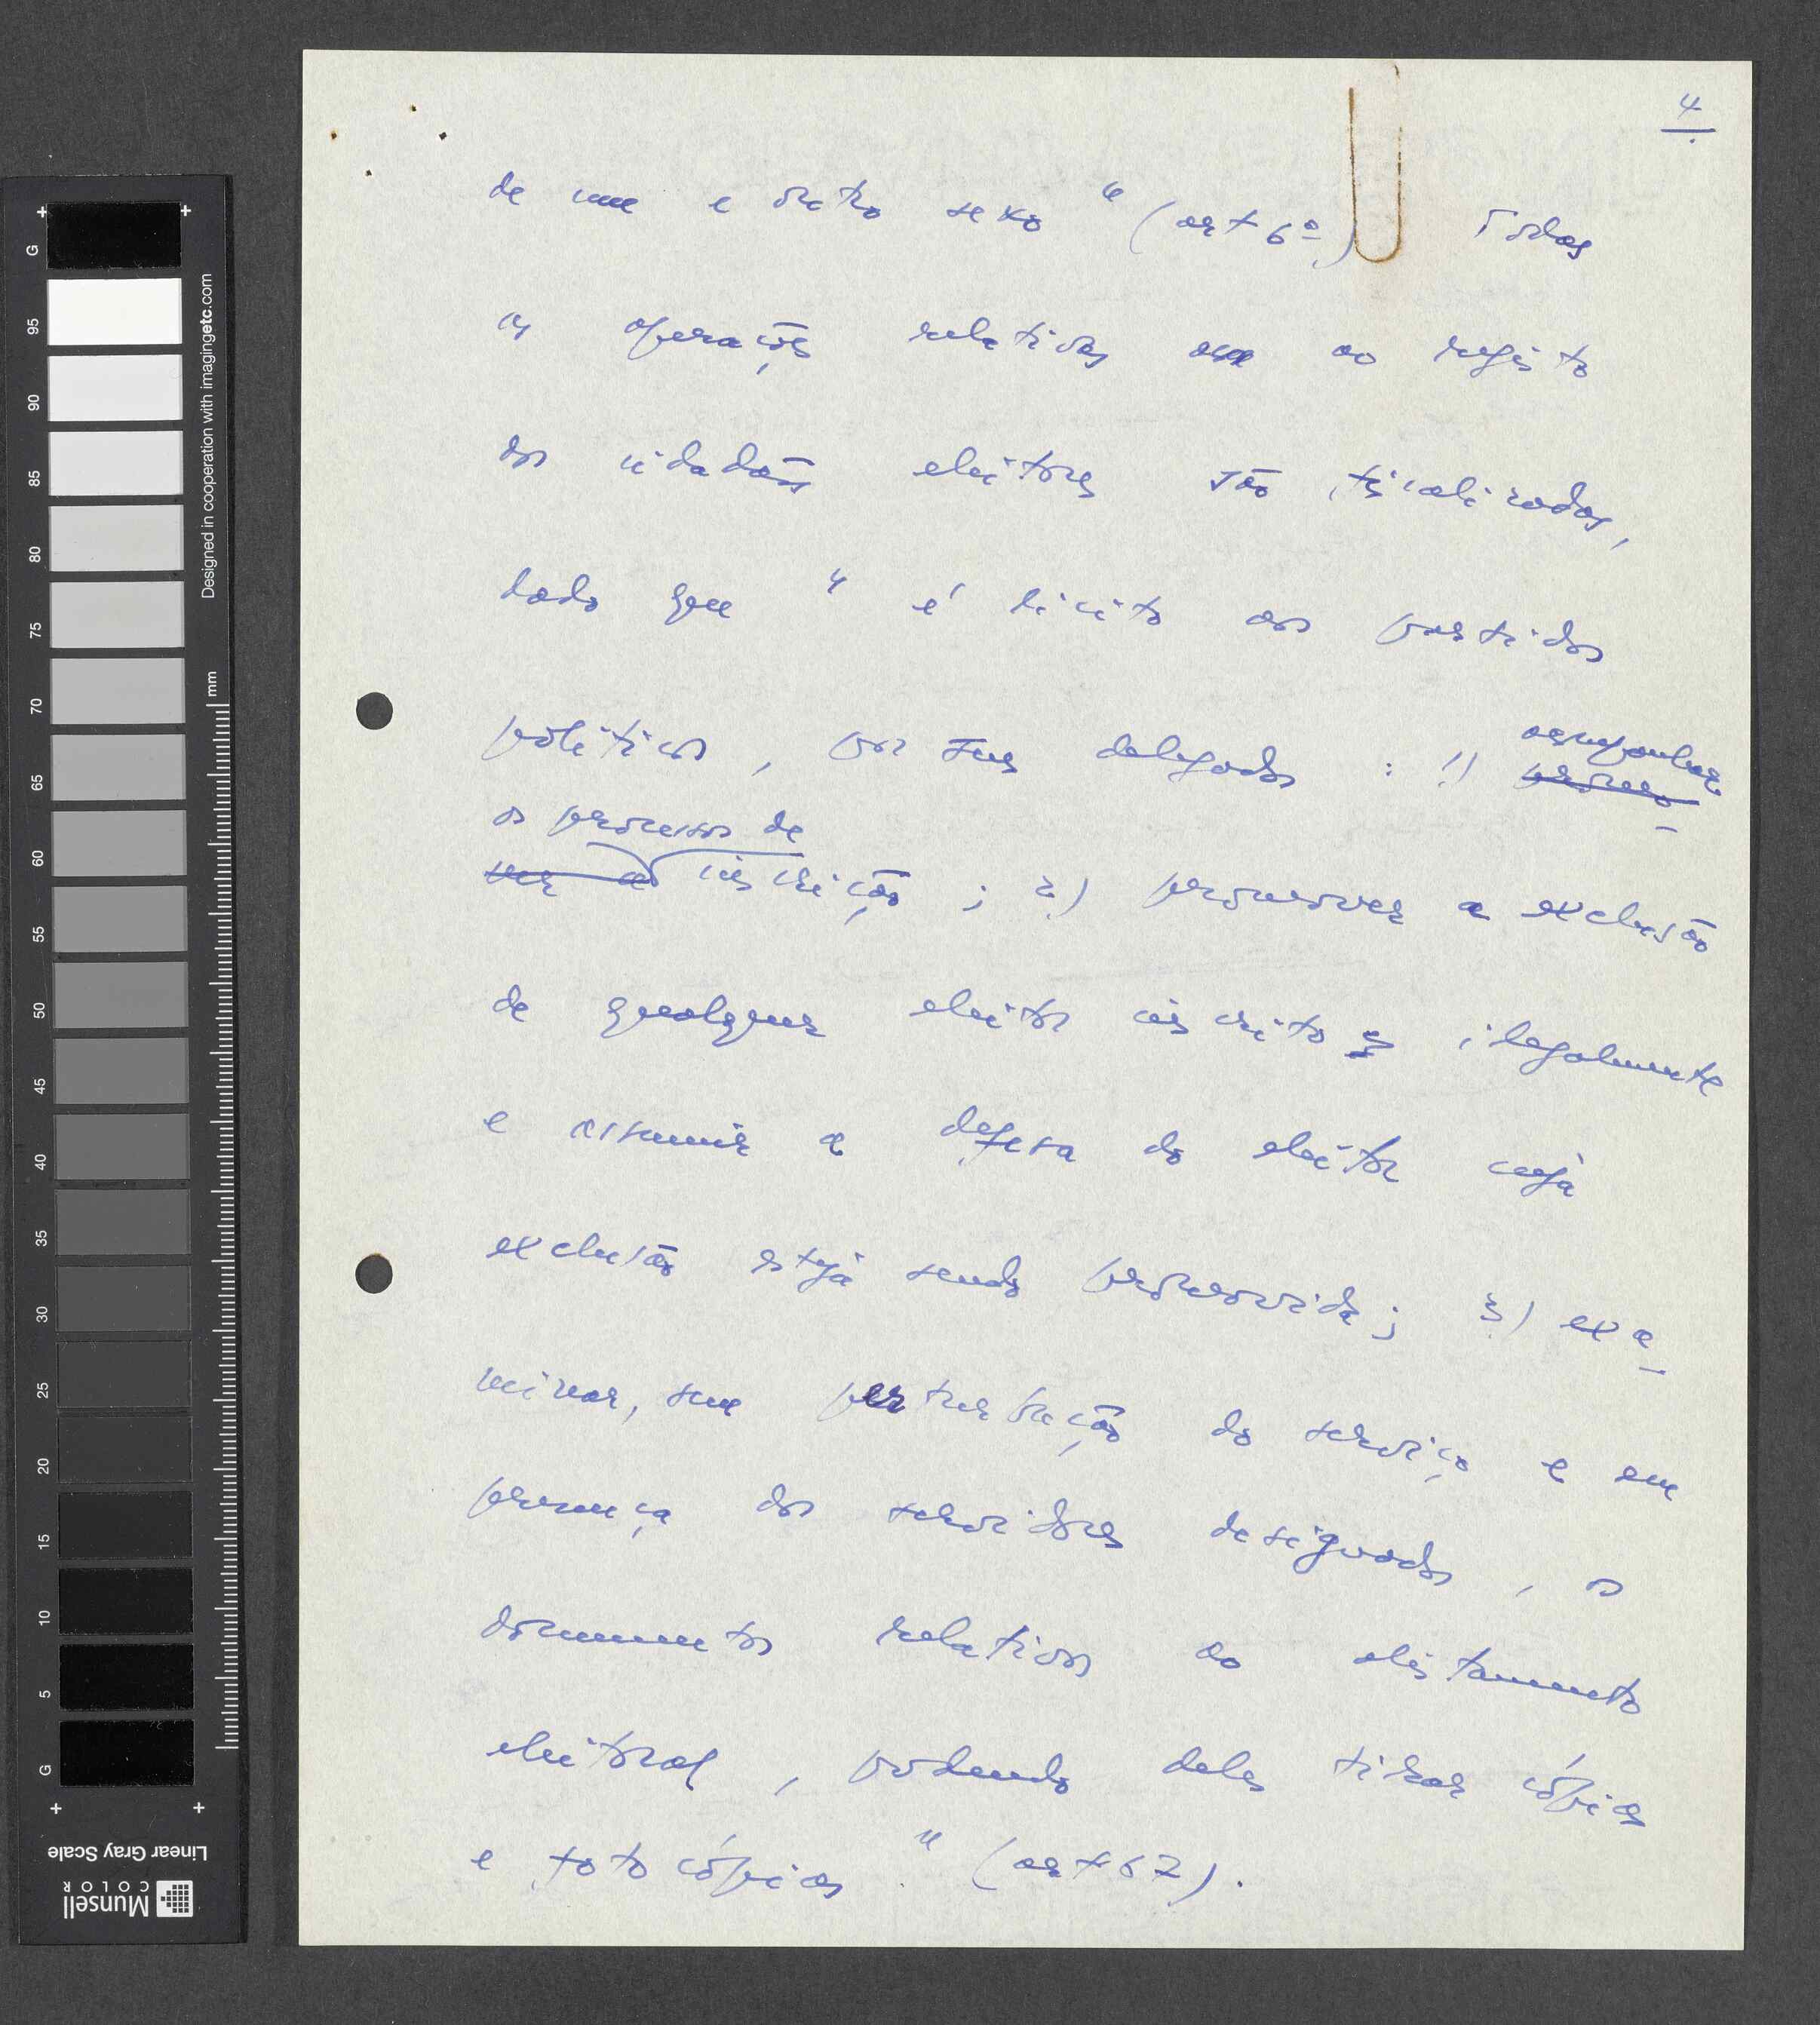 4
de um e outro sexo" (art 6º) Todas
as operações relativas ao registo
dos cidadãos eleitores são fiscalizadas,
dado que "é lícito aos partidos
políticos, por seus delegados: 1) acompanhar
promo-
os processos de
ver a inscrição; 2) promover a exclusão
de qualquer eleitor inscrito ilegalmente
e assumir a defesa do eleitor cuja
exclusão esteja sendo promovida; 3) exa-
minar, sem perturbação do serviço e em
presença dos servidores designados, os
documentos relativos ao alistamento
eleitoral, podendo deles tirar cópias
e fotocópias." (art 67).
G
95
90
85
80
75
70
65
60
55
50
45
40
35
30
25
20
15
10
5
G
mm
Designed in cooperation with imagingetc.com
Linear Gray Scale
Munsell
COLOR